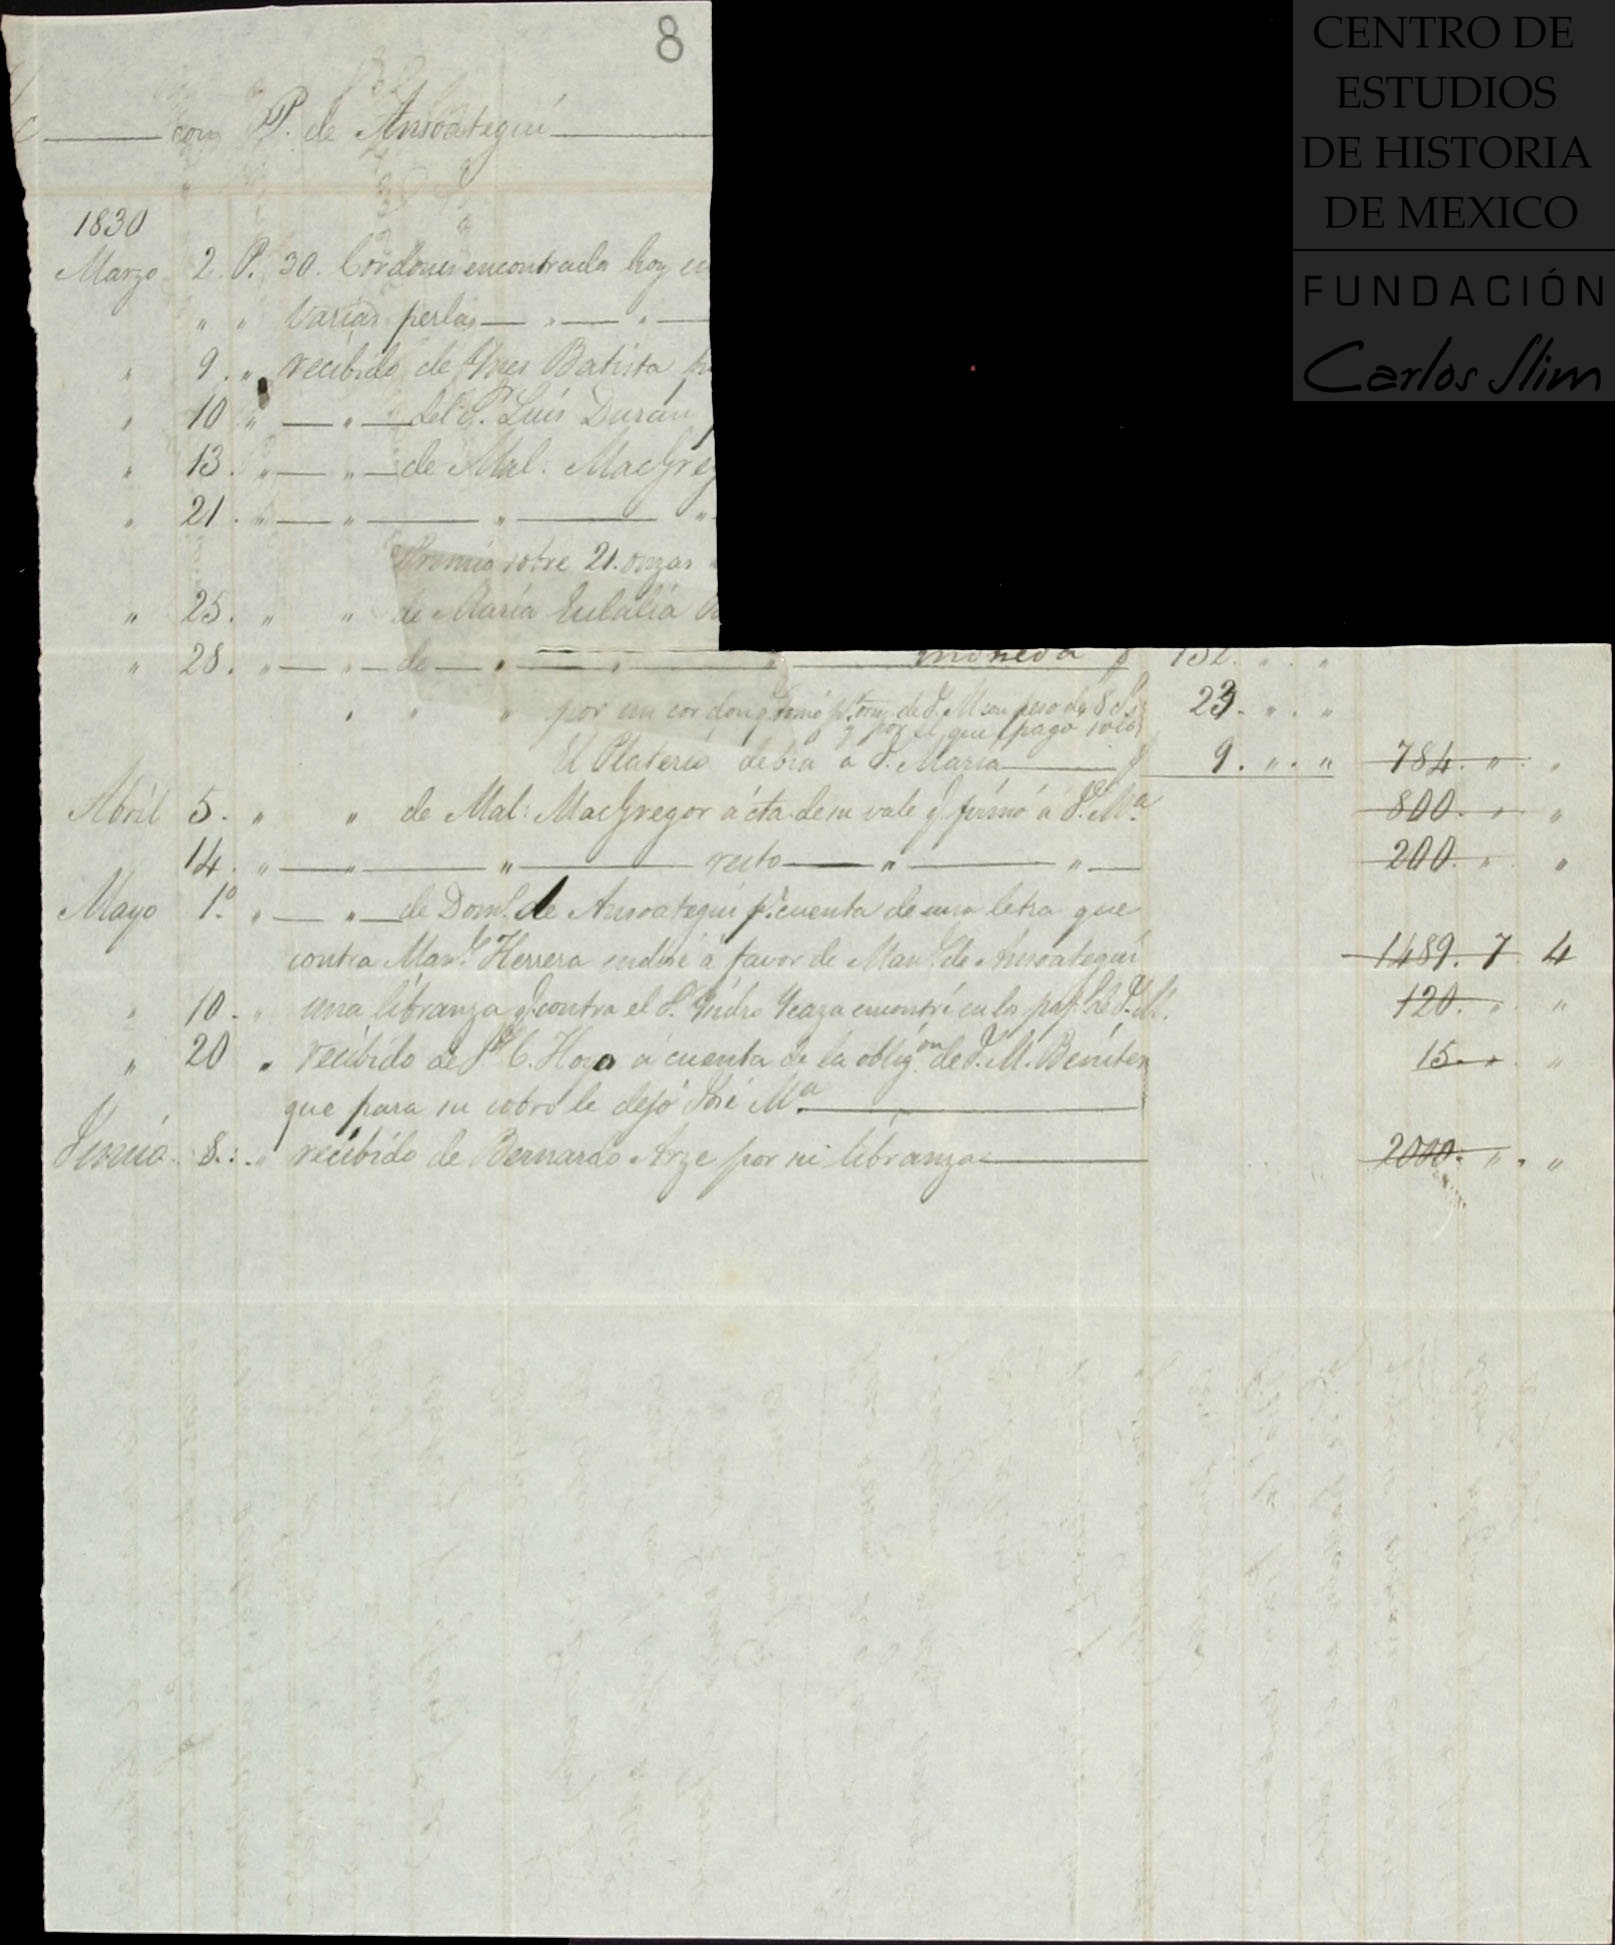 8
CENTRO DE
ESTUDIOS
DE HISTORIA
DE MEXICO
FUNDACIÓN
Carlos Slim
con P. de Ansoategui
1830
Marzo 2. P. 30. Cordones encontrados hoy en
" " Varias perlas — " — " —
" 9. " recibido de Ynes Batista
" 10 " — " — del S. Luis Durán
" 13. " — " — de Mal: MacGreg
" 21. " — " — " — "
Premio sobre 21. onzas
" 25. " " de María Eulalia
" 28. " — " — de — " — " — " — moneda 132. " . "
" " " por un cordon q. tomó de J. M. con peso de 8
y por el que pagó solo
23. " . "
El Platero debia a J. Maria 9. " . " 784. " . "
Abril 5. " " de Mal: MacGregor á cta. de su vale q. firmó á J. Mª 800. " "
14. " — " — " — resto — " — " — 200. " "
Mayo 1.º " — " — de Dom.º de Ansoategui p.r cuenta de una letra que
contra Man.l Herrera endosé á favor de Man.l de Ansoategui 1489. 7. 4
" 10. " una libranza q. contra el S. Ysidro Ycaza encontré en los pap.s de J. M. 120. " "
" 20 " recibido de C. Hoyo á cuenta de la oblig.on de J. M. Benites 15. " "
que para su cobro le dejó José Mª
Junio 8. " recibido de Bernardo Arze por su libranza 2000. " . "